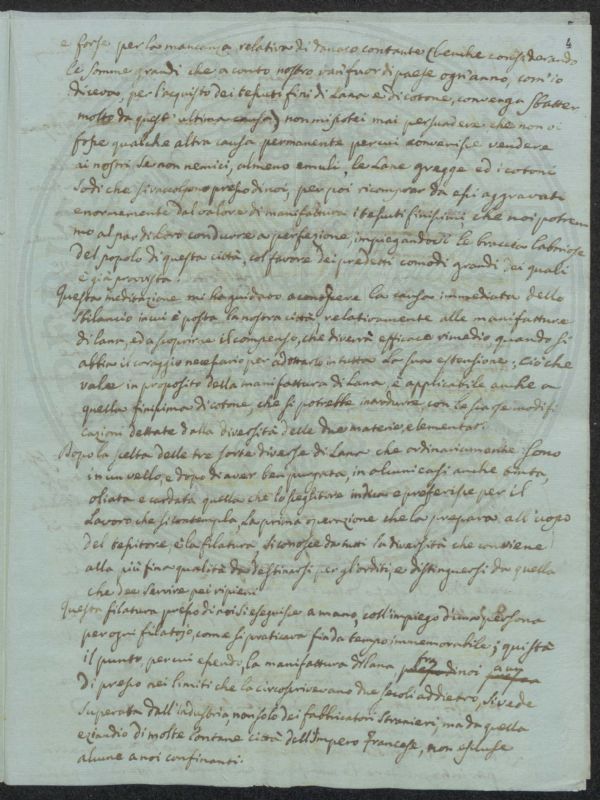 4
e forse per la mancanza relativa di danaro contante (benche considerando
le somme grandi che a conto nostro van fuor di paese ogni anno, com'io
diceva, per l'acquisto dei tessuti fini di Lana e di cotone, convenga sbatter
molto da quest'ultima causa) non mi potei mai persuadere che non vi
fosse qualche altra causa permanente per cui convenisse vendere
ai nostri se non nemici, almeno emuli, le Lane gregge ed i cotoni
sodi che si raccolgono presso di noi, per poi ricomprar da essi aggravati
enormemente dal valore di manifattura i tessuti finissimi che noi potrem
mo al par di Loro condurre a perfezione, impiegandovi le braccia laboriose
del popolo di questa città, col favore dei predetti comodi grandi dei quali
è già provvista.
Questa meditazione mi ha guidato a conoscere la causa immediata dello
sbilancio in cui è posta la nostra città relativamente alle manifatture
di lana, ed a scoprirne il compenso, che diverrà efficace rimedio quando si
abbia il coraggio necessario per adottarlo in tutta la sua estensione; Ciò che
vale in proposito della manifattura di Lana, è applicabile anche a
quella finissima di cotone, che si potrebbe introdurre, con le scarse modifi
cazioni dettate dalla diversità delle due materie elementari.
Dopo la scelta delle tre sorte diverse di Lana che ordinariamente sono
in un vello, e dopo di aver ben purgata, in alcuni casi anche tinta,
oliata e cardata quella che lo sceglitore indica e preferisce per il
Lavoro che si contempla, La prima operazione che la prepara all'uopo
del tessitore, è la filatura, si conosce da tutti la diversità che conviene
alla più fina qualità da destinarsi per gli orditi, e distinguersi da quella
che dee servire pei ripieni.
Questa filatura presso di noi si eseguisce a mano, coll'impiego di una persona
per ogni filatojo, come si praticava fin da tempo immemorabile; quist'è
il punto, per cui essendo, la manifattura di Lana fra noi
di presso nei limiti che la circoscrivevano due secoli addietro, si vede
superata dall'industria, non solo dei fabbricatori stranieri, ma da quella
eziandio di molte lontane città dell'Impero Francese, non escluse
alcune a noi confinanti.